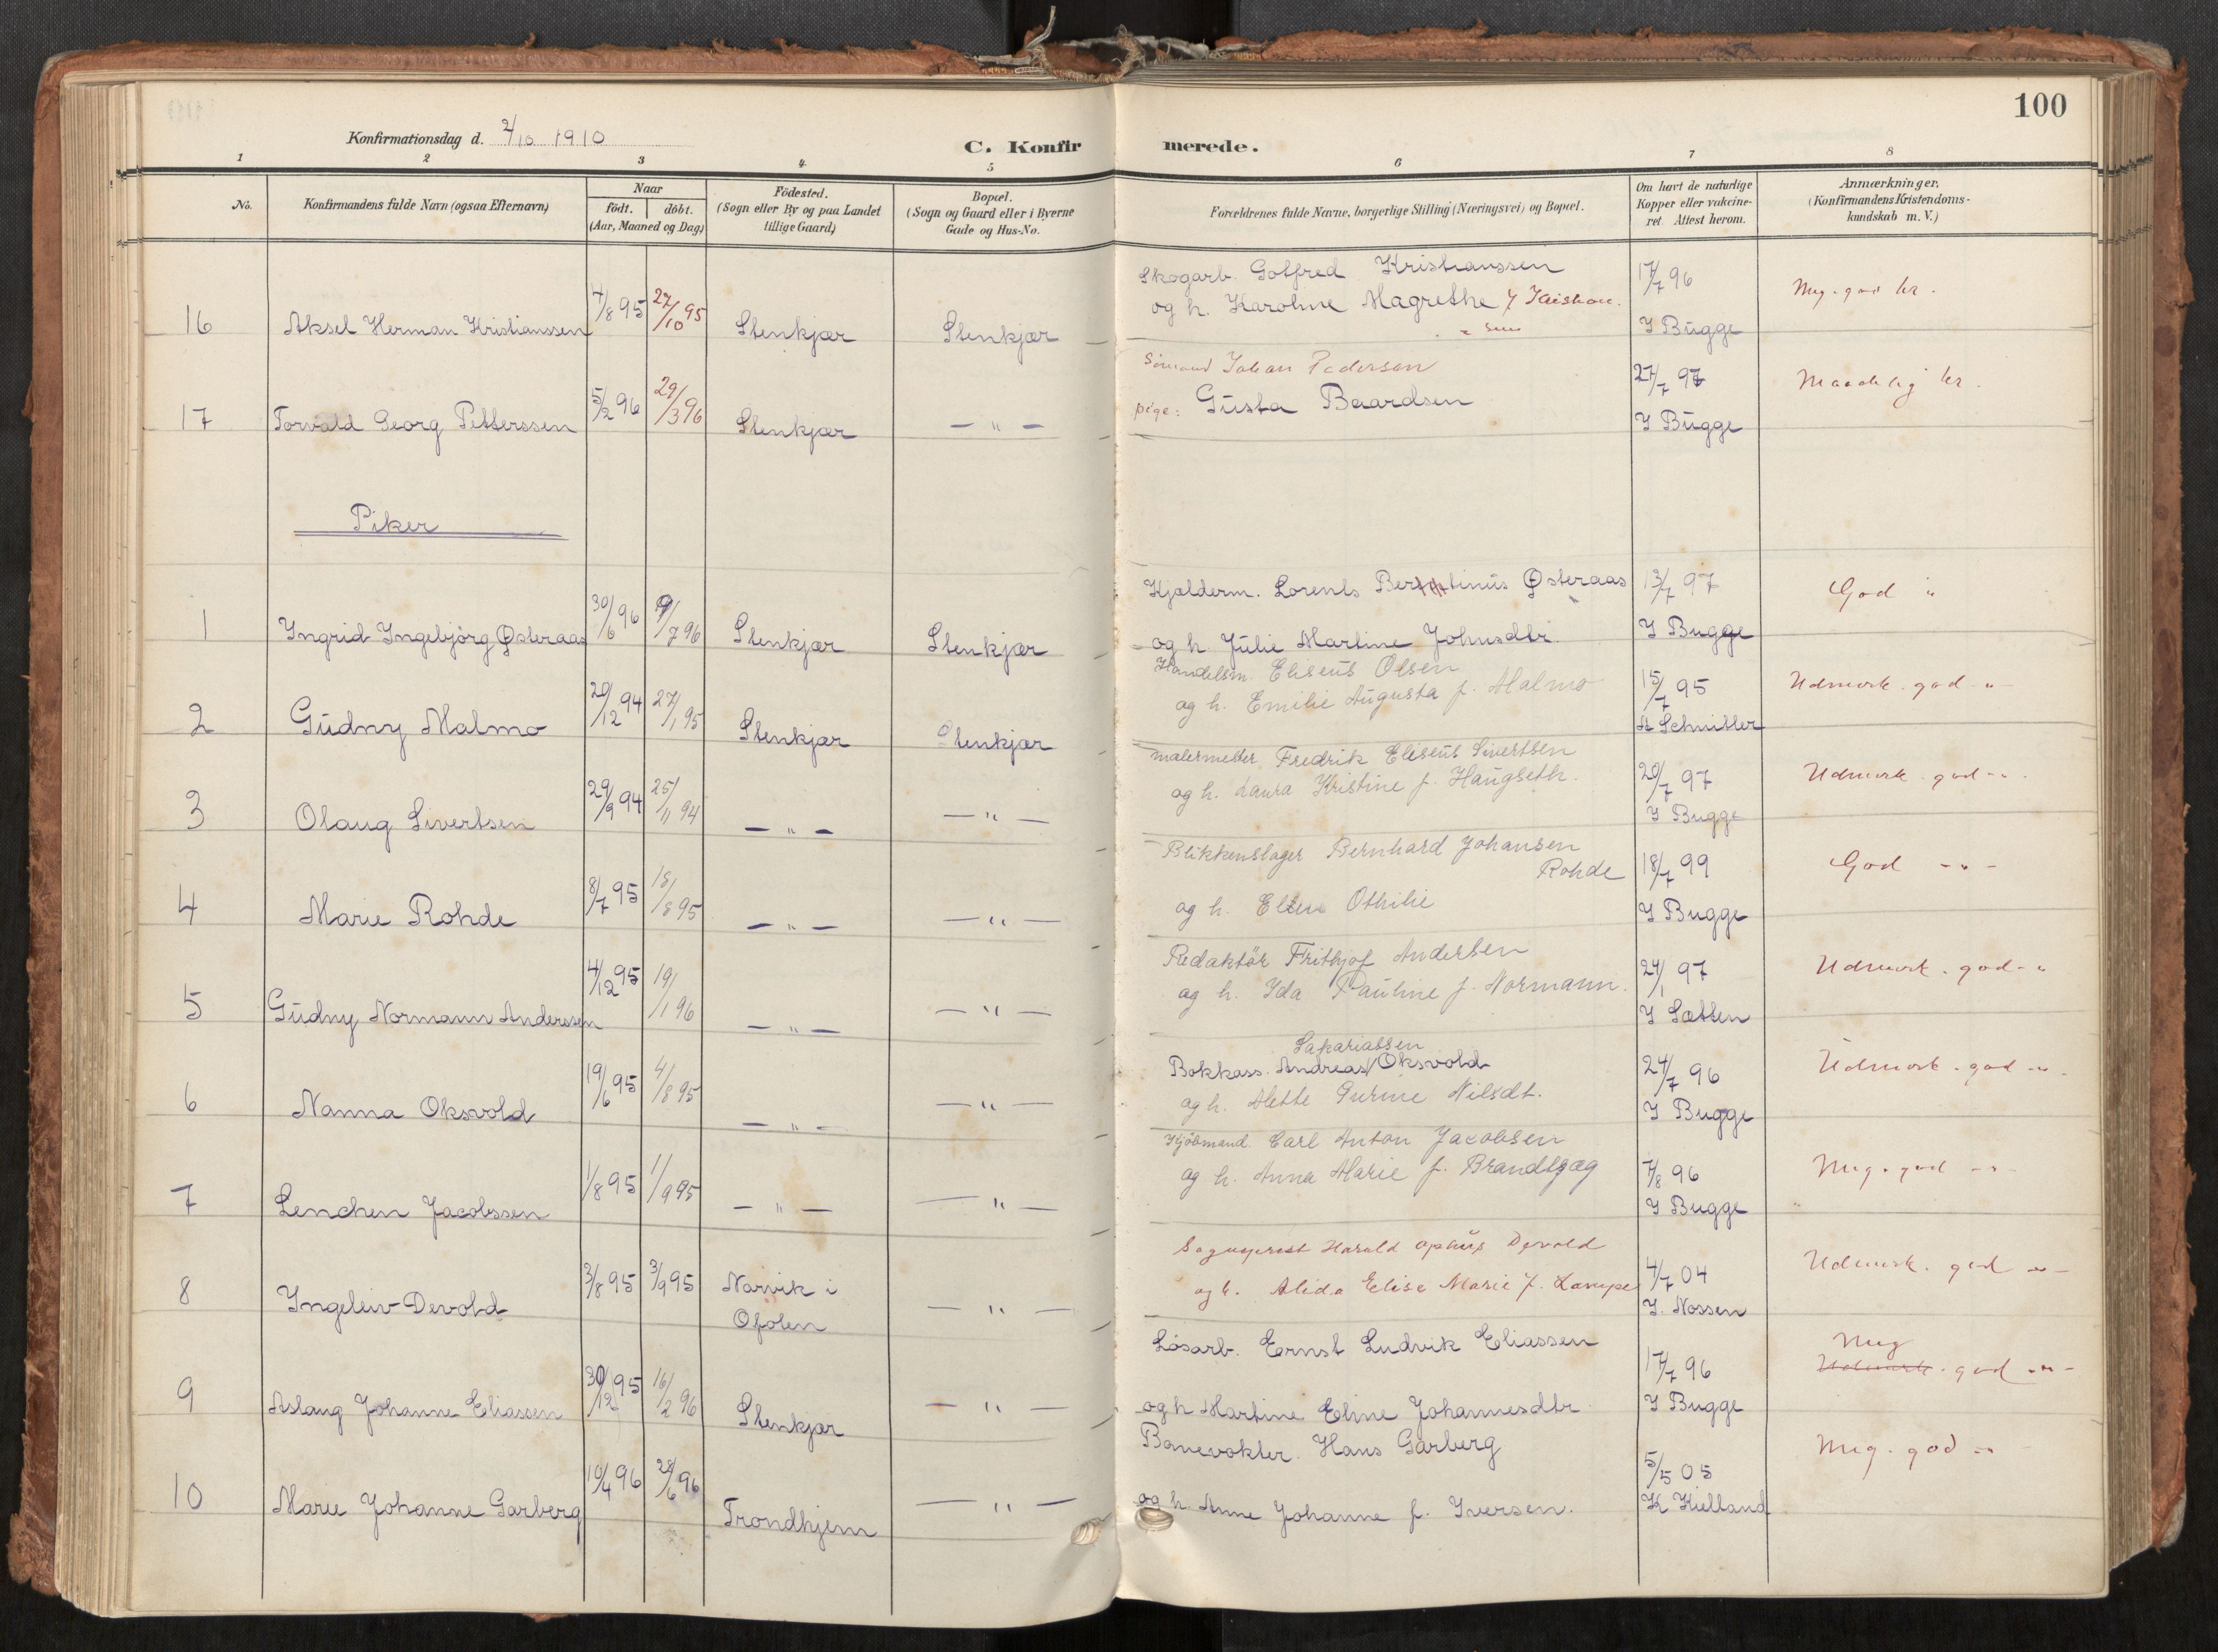 100
Konfirmationsdag d. 2/10 1910
C. Konfirmerede.
1 2 3 4 5 6 7 8
No.
Konfirmandens fulde Navn (ogsaa Efternavn)
Naar
født. døbt.
(Aar, Maaned og Dag)
Fødested.
(Sogn eller By og paa Landet
tillige Gaard)
Bopæl.
(Sogn og Gaard eller i Byerne
Gade og Hus-No.
Forældrenes fulde Navne, borgerlige Stilling (Næringsvei) og Bopæl.
Om havt de naturlige
Kopper eller vakcine-
ret. Attest herom.
Anmærkninger.
(Konfirmandens Kristendoms-
kundskab m. V.)
Skogarb. Gotfred Kristianssen
og h. Karoline Magrethe
17/7 96
I Bugge
Meg. god kr.
16 Aksel Herman Kristianssen 4/8 95 27/10 95 Stenkjær Stenkjær
Johan Pedersen
pige: Gusta Baardsen
27/7 97
I Bugge
Maadelig kr.
17 Torvald Georg Petterssen 5/2 96 29/3 96 Stenkjær — " —
Piker
Kjælderm. Lorents Bertinus Østeraas
og h. Julie Martine Johnsdtr.
13/7 97
I Bugge
God "
1 Ingrid Ingebjørg Østeraas 30/6 96 9/7 96 Stenkjær Stenkjær
Handelsm. Eliseus Olsen
og h. Emilie Augusta f. Malmo
15/7 95
A Schnitler
Udmerk. god - " -
2 Gudny Malmo 20/12 94 27/1 95 Stenkjær Stenkjær
malermester Fredrik Eliseus Sivertsen
og h. Laura Kristine f. Haugseth.
20/7 97
I Bugge
Udmerk. god - " -
3 Olaug Sivertsen 29/9 94 25/11 94 — " — — " —
Blikkenslager Bernhard Johansen
Rohde
og h. Ellen Othilie
18/7 99
I Bugge
God - " -
4 Marie Rohde 8/7 95 18/8 95 — " — — " —
Redaktør Frithjof Andersen
og h. Ida Pauline f. Normann.
24/1 97
I Sætten
Udmerk. god - "
5 Gudny Normann Anderssen 4/12 95 19/1 96 — " — — " —
Sakariassen
Bokkass. Andreas Oksvold
og h. Mette Gurine Nilsdt.
24/7 96
I Bugge
Udmerk. god - " -
6 Nanna Oksvold 19/6 95 4/8 95 — " — — " —
Kjøbmand. Carl Anton Jacobsen
og h. Anna Marie f. Brandtzæg
7/8 96
I Bugge
Meg. god - " -
7 Lenchen Jacobssen 1/8 95 1/9 95 — " — — " —
Sogneprest Harald Ophus Devold
og h. Alida Elise Marie f. Lampe
4/7 04
I. Nossen
Udmerk. god - " -
8 Ingeleiv Devold 3/8 95 3/9 95 Narvik i
Ofoten — " —
Løsarb. Ernst Ludvik Eliassen
og h Martine Eline Johannesdtr
17/7 96
I Bugge
Meg
Udmerk. god - " -
9 Aslaug Johanne Eliassen 30/12 95 16/2 96 Stenkjær — " —
Banevokter. Hans Garberg
og h. Anne Johanne f. Iversen.
5/5 05
K Kielland
Meg. god - "
10 Marie Johanne Garberg 10/4 96 28/6 96 Trondhjem — " —